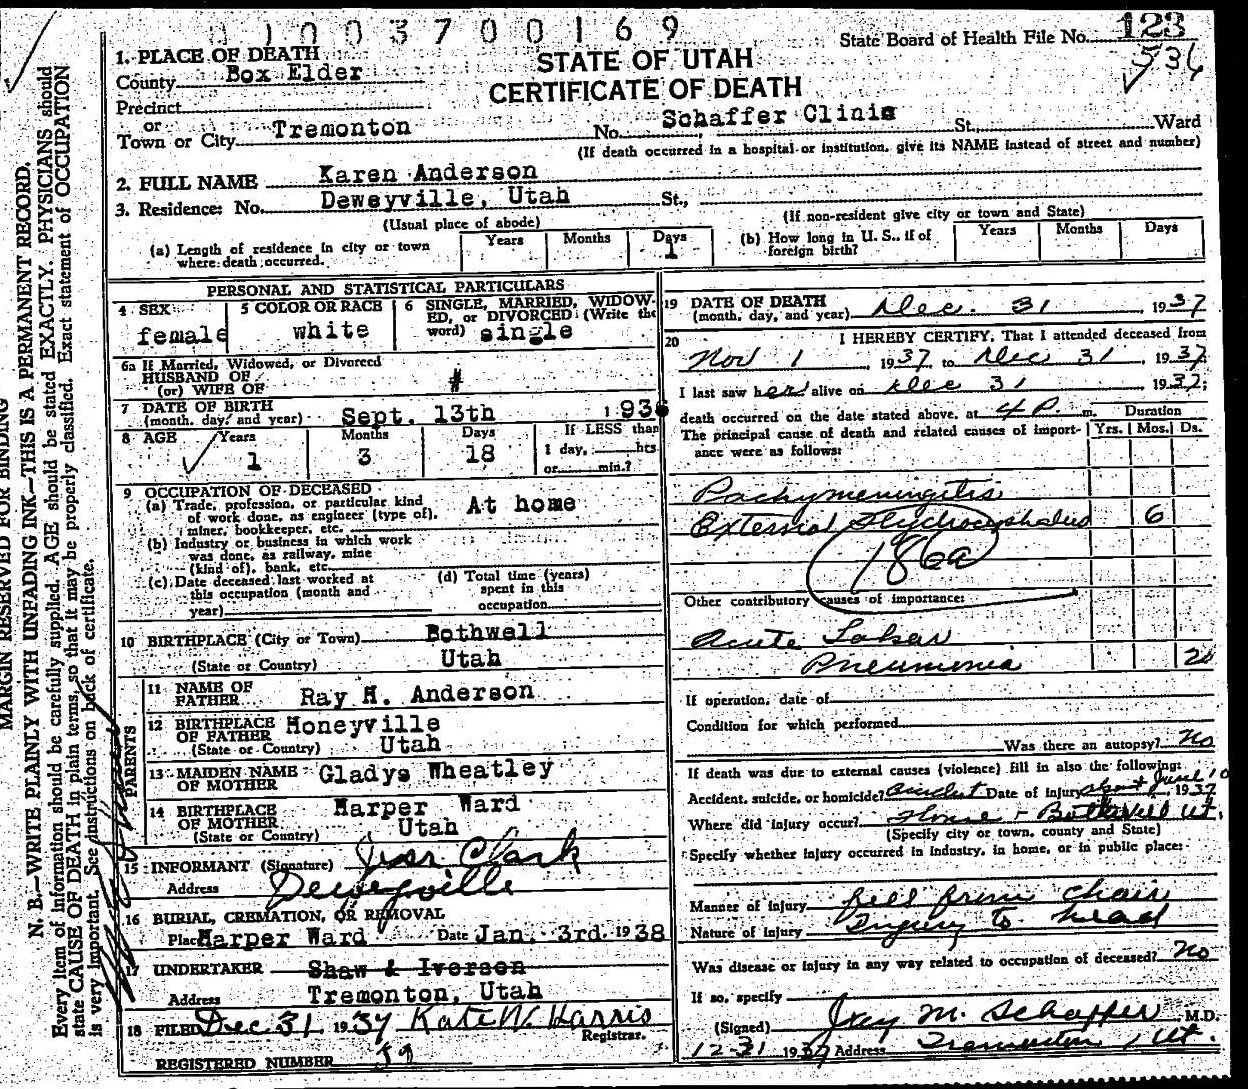 0 1 0 0 3 7 0 0 1 6 9
State Board of Health File No. 123
536
STATE OF UTAH
CERTIFICATE OF DEATH
1. PLACE OF DEATH
County Box Elder
Precinct
or
Town or City Tremonton No. Schaffer Clinic St., Ward
(If death occurred in a hospital or institution, give its NAME instead of street and number)
2. FULL NAME Karen Anderson
3. Residence: No. Deweyville, Utah St.,
(Usual place of abode) (If non-resident give city or town and State)
(a) Length of residence in city or town where death occurred. Years Months Days 1
(b) How long in U. S., if of foreign birth? Years Months Days
PERSONAL AND STATISTICAL PARTICULARS
4 SEX female
5 COLOR OR RACE white
6 SINGLE, MARRIED, WIDOWED, or DIVORCED (Write the word) single
6a If Married, Widowed, or Divorced
HUSBAND OF
(or) WIFE OF #
7 DATE OF BIRTH
(month, day, and year) Sept. 13th 1936
8 AGE Years 1 Months 3 Days 18 If LESS than 1 day, hrs. or min.?
9 OCCUPATION OF DECEASED
(a) Trade, profession, or particular kind of work done, as engineer (type of), miner, bookkeeper, etc. At home
(b) Industry or business in which work was done, as railway, mine (kind of), bank, etc.
(c) Date deceased last worked at this occupation (month and year)
(d) Total time (years) spent in this occupation
10 BIRTHPLACE (City or Town) Bothwell
(State or Country) Utah
PARENTS
11 NAME OF FATHER Ray H. Anderson
12 BIRTHPLACE OF FATHER Honeyville
(State or Country) Utah
13 MAIDEN NAME OF MOTHER Gladys Wheatley
14 BIRTHPLACE OF MOTHER Harper Ward
(State or Country) Utah
15 INFORMANT (Signature) Jess Clark
Address Deweyville
16 BURIAL, CREMATION, OR REMOVAL
Place Harper Ward Date Jan. 3rd. 1938
17 UNDERTAKER Shaw & Iverson
Address Tremonton, Utah
18 FILED Dec 31 1937 Kate W. Harris
Registrar.
REGISTERED NUMBER 59
19 DATE OF DEATH
(month, day, and year) Dec. 31 1937
20 I HEREBY CERTIFY, That I attended deceased from
Nov 1, 1937 to Dec 31, 1937
I last saw her alive on Dec 31 1937;
death occurred on the date stated above, at 4 P. m. Duration
The principal cause of death and related causes of importance were as follows: Yrs. Mos. Ds.
Pachymeningitis
External Hydrocephalus 6
186a
Other contributory causes of importance:
Acute Lobar
Pneumonia 20
If operation, date of
Condition for which performed
Was there an autopsy? No
If death was due to external causes (violence) fill in also the following:
Accident, suicide, or homicide? Accident Date of injury about June 10, 1937
Where did injury occur? Home - Bothwell Ut.
(Specify city or town, county and State)
Specify whether injury occurred in industry, in home, or in public place:
Manner of injury fell from chair
Nature of injury Injury to head
Was disease or injury in any way related to occupation of deceased? No
If so, specify
(Signed) Jay M. Schaffer M.D.
12-31 1937 Address Tremonton, Ut.
MARGIN RESERVED FOR BINDING
N. B.—WRITE PLAINLY WITH UNFADING INK—THIS IS A PERMANENT RECORD.
Every item of information should be carefully supplied. AGE should be stated EXACTLY. PHYSICIANS should
state CAUSE OF DEATH in plain terms, so that it may be properly classified. Exact statement of OCCUPATION
is very important. See instructions on back of certificate.